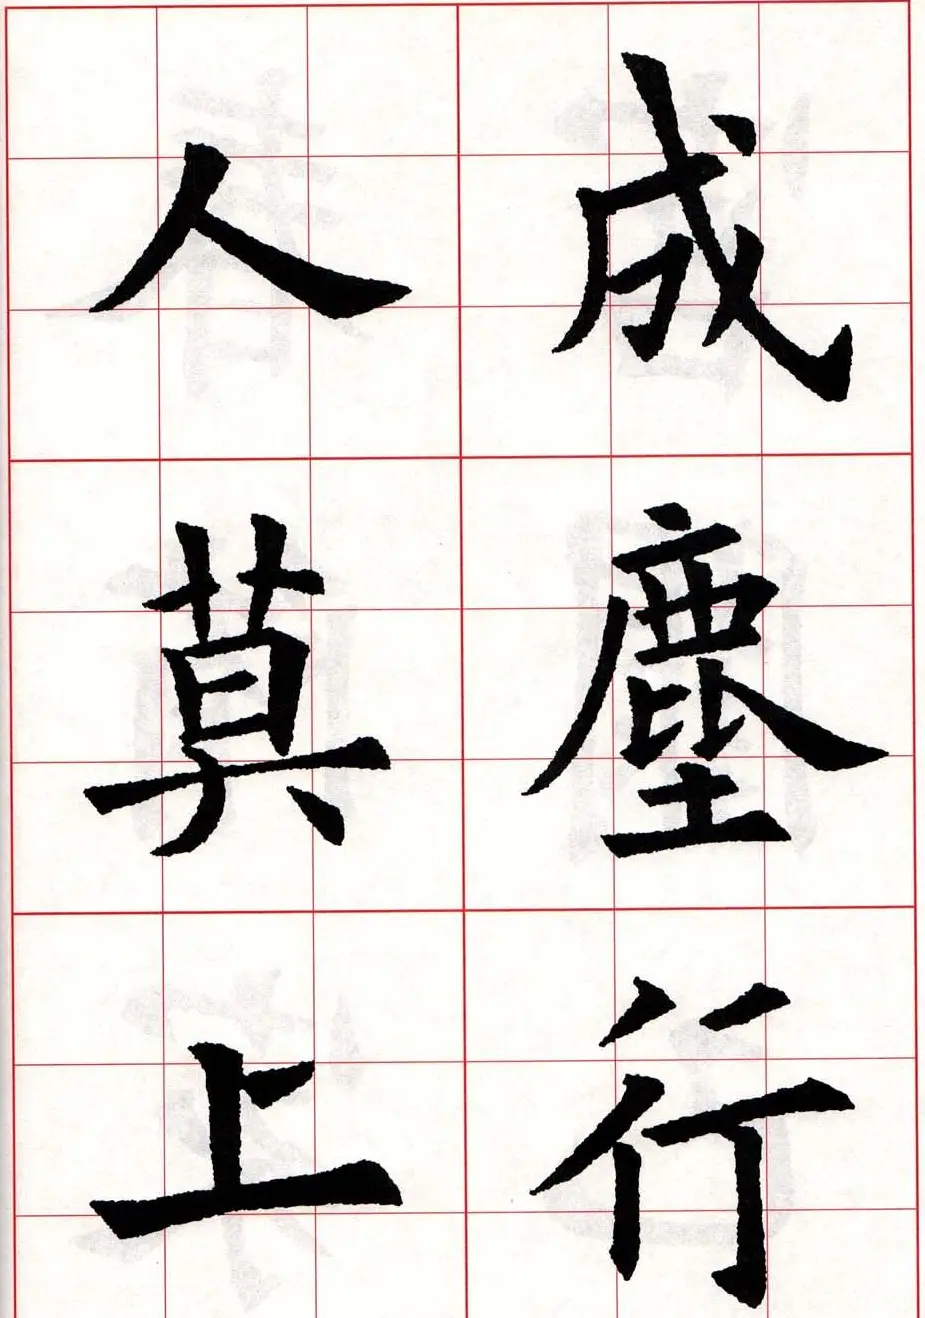 成塵行
人莫上